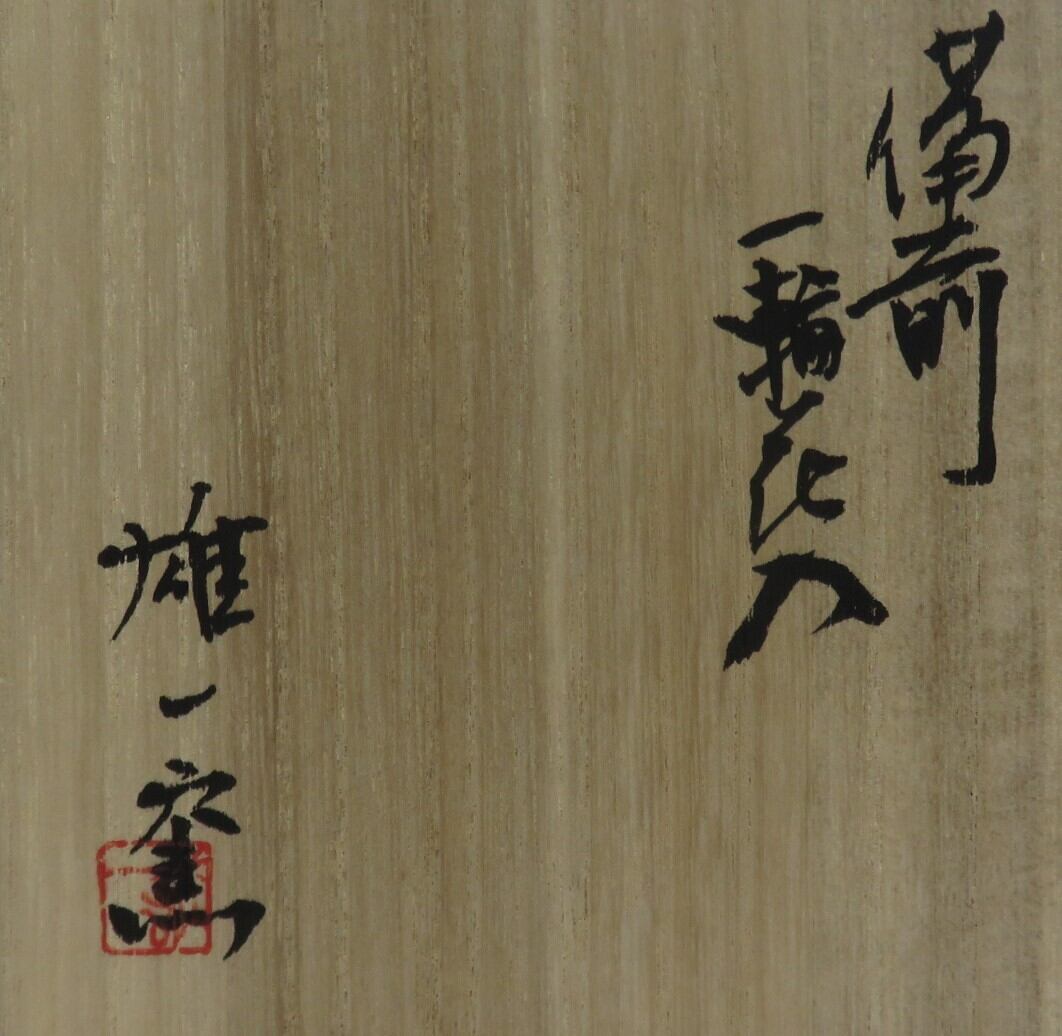 備前
一輪花入
雄一窯